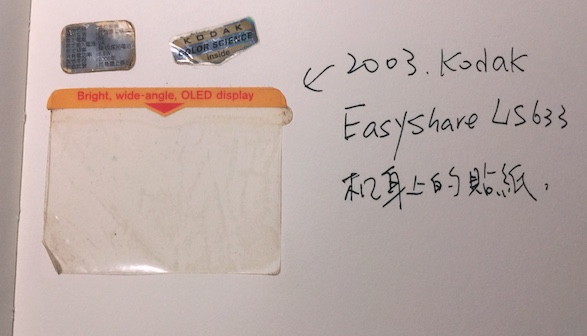 KODAK
COLOR SCIENCE
inside
Bright, wide-angle, OLED display
2003. Kodak
Easyshare LS633
机身上的貼紙.